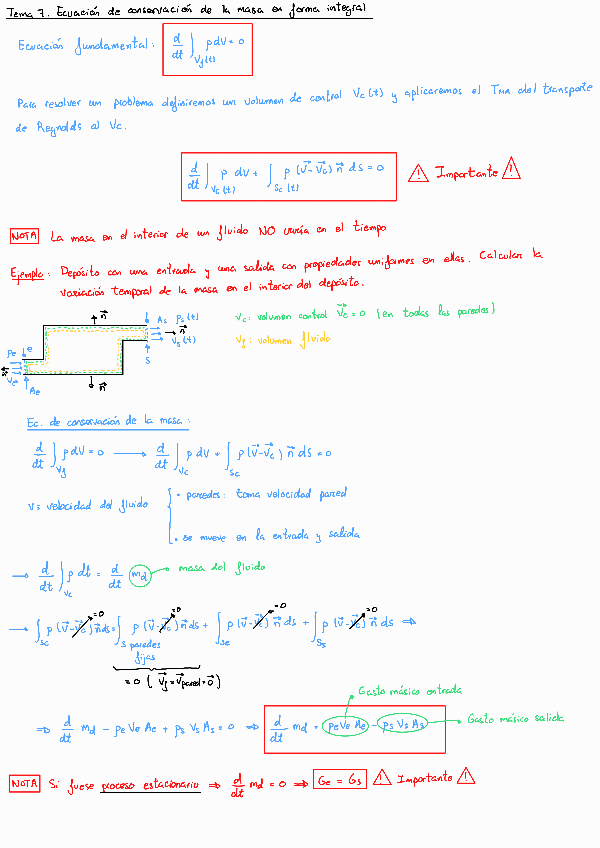 Tema 7. Ecuación de conservación de la masa en forma integral
Ecuación fundamental: d/dt ∫_Vf(t) ρ dV = 0
Para resolver un problema definiremos un volumen de control Vc(t) y aplicaremos el Tma del transporte
de Reynolds al Vc.
d/dt ∫_Vc(t) ρ dV + ∫_Sc(t) ρ (v⃗ - v⃗c) n⃗ ds = 0 ⚠ Importante ⚠
NOTA La masa en el interior de un fluido NO varía en el tiempo
Ejemplo: Depósito con una entrada y una salida con propiedades uniformes en ellas. Calcular la
variación temporal de la masa en el interior del depósito.
n⃗ As ρs(t)
n⃗
vs(t)
S
ρe e
ve
Ae
n⃗
Vc: volumen control v⃗c = 0 (en todas las paredes)
Vf: volumen fluido
Ec. de conservación de la masa:
d/dt ∫_Vf ρ dV = 0 → d/dt ∫_Vc ρ dV + ∫_Sc ρ (v⃗ - v⃗c) n⃗ ds = 0
V = velocidad del fluido
• paredes: toma velocidad pared
• se mueve en la entrada y salida
→ d/dt ∫_Vc ρ dt = d/dt md → masa del fluido
→ ∫_Sc ρ (v⃗ - v⃗c) n⃗ ds = ∫_S paredes fijas ρ (v⃗ - v⃗c) n⃗ ds + ∫_Se ρ (v⃗ - v⃗c) n⃗ ds + ∫_Ss ρ (v⃗ - v⃗c) n⃗ ds ⇒
=0 =0 =0 =0
= 0 (v⃗f = v⃗pared = 0⃗)
Gasto másico entrada
⇒ d/dt md - ρe Ve Ae + ρs Vs As = 0 ⇒ d/dt md = ρe Ve Ae - ρs Vs As → Gasto másico salida
NOTA Si fuese proceso estacionario ⇒ d/dt md = 0 ⇒ Ge = Gs ⚠ Importante ⚠